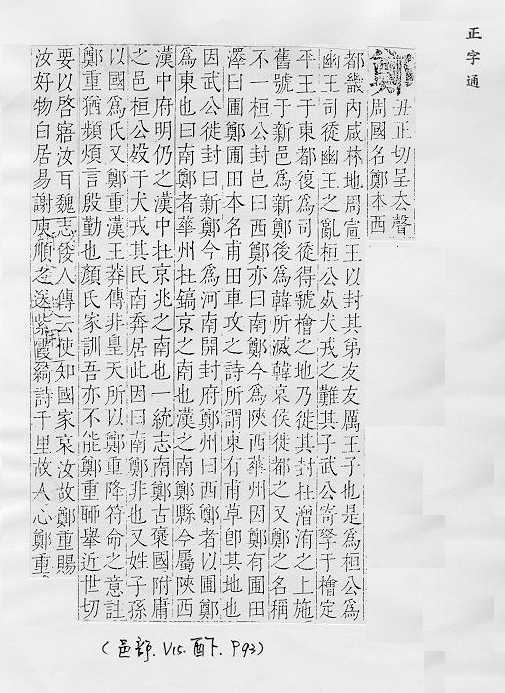 正字通
鄭
丑正切呈去聲
周國名鄭本西
都畿內咸林地周宣王以封其弟友友厲王子也是為桓公為
幽王司徒幽王之亂桓公死犬戎之難其子武公寄孥于檜定
平王于東都復為司徒得虢檜之地乃徙其封於溱洧之上施
舊號于新邑為新鄭後為韓所滅韓哀侯徙都之又鄭之名稱
不一桓公封邑曰西鄭亦曰南鄭今為陝西華州因鄭有圃田
澤曰圃鄭圃田本名甫田車攻之詩所謂東有甫草卽其地也
因武公徙封曰新鄭今為河南開封府鄭州曰西鄭者以圃鄭
為東也曰南鄭者華州在鎬京之南也漢之南鄭縣今屬陝西
漢中府明仍之漢中在京兆之南也一統志南鄭古褒國附庸
之邑桓公歿于犬戎其民南奔居此因曰南鄭非也又姓子孫
以國為氏又鄭重漢王莽傳非皇天所以鄭重降符命之意註
鄭重猶頻煩言殷勤也顏氏家訓吾亦不能鄭重聊舉近世切
要以啓寤汝耳魏志倭人傳云使知國家哀汝故鄭重賜
汝好物白居易謝庾順之送紫霞綺詩千里故人心鄭重
(邑部. V15. 酉下. P93)